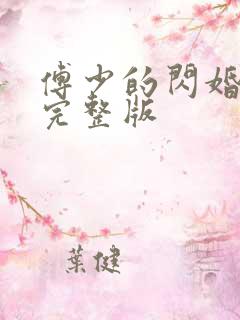 傅少的閃婚
完整版
葉健